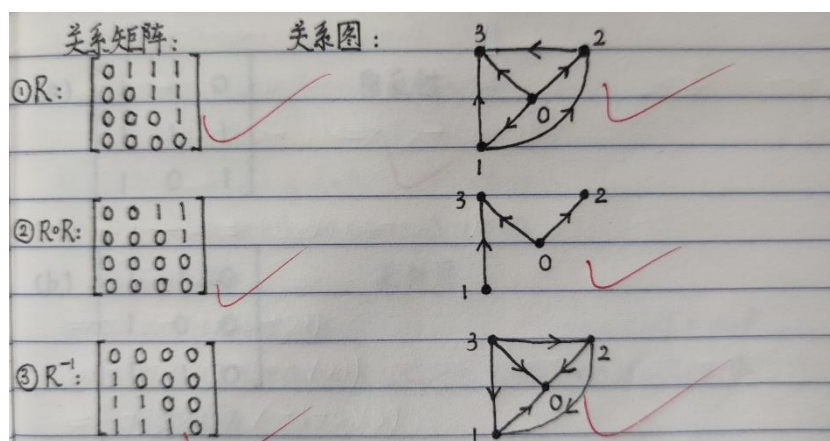 关系矩阵: 关系图:
①R: 0 1 1 1
0 0 1 1
0 0 0 1
0 0 0 0
3 2
0
1
②R∘R: 0 0 1 1
0 0 0 1
0 0 0 0
0 0 0 0
3 2
0
1
③R⁻¹: 0 0 0 0
1 0 0 0
1 1 0 0
1 1 1 0
3 2
0
1